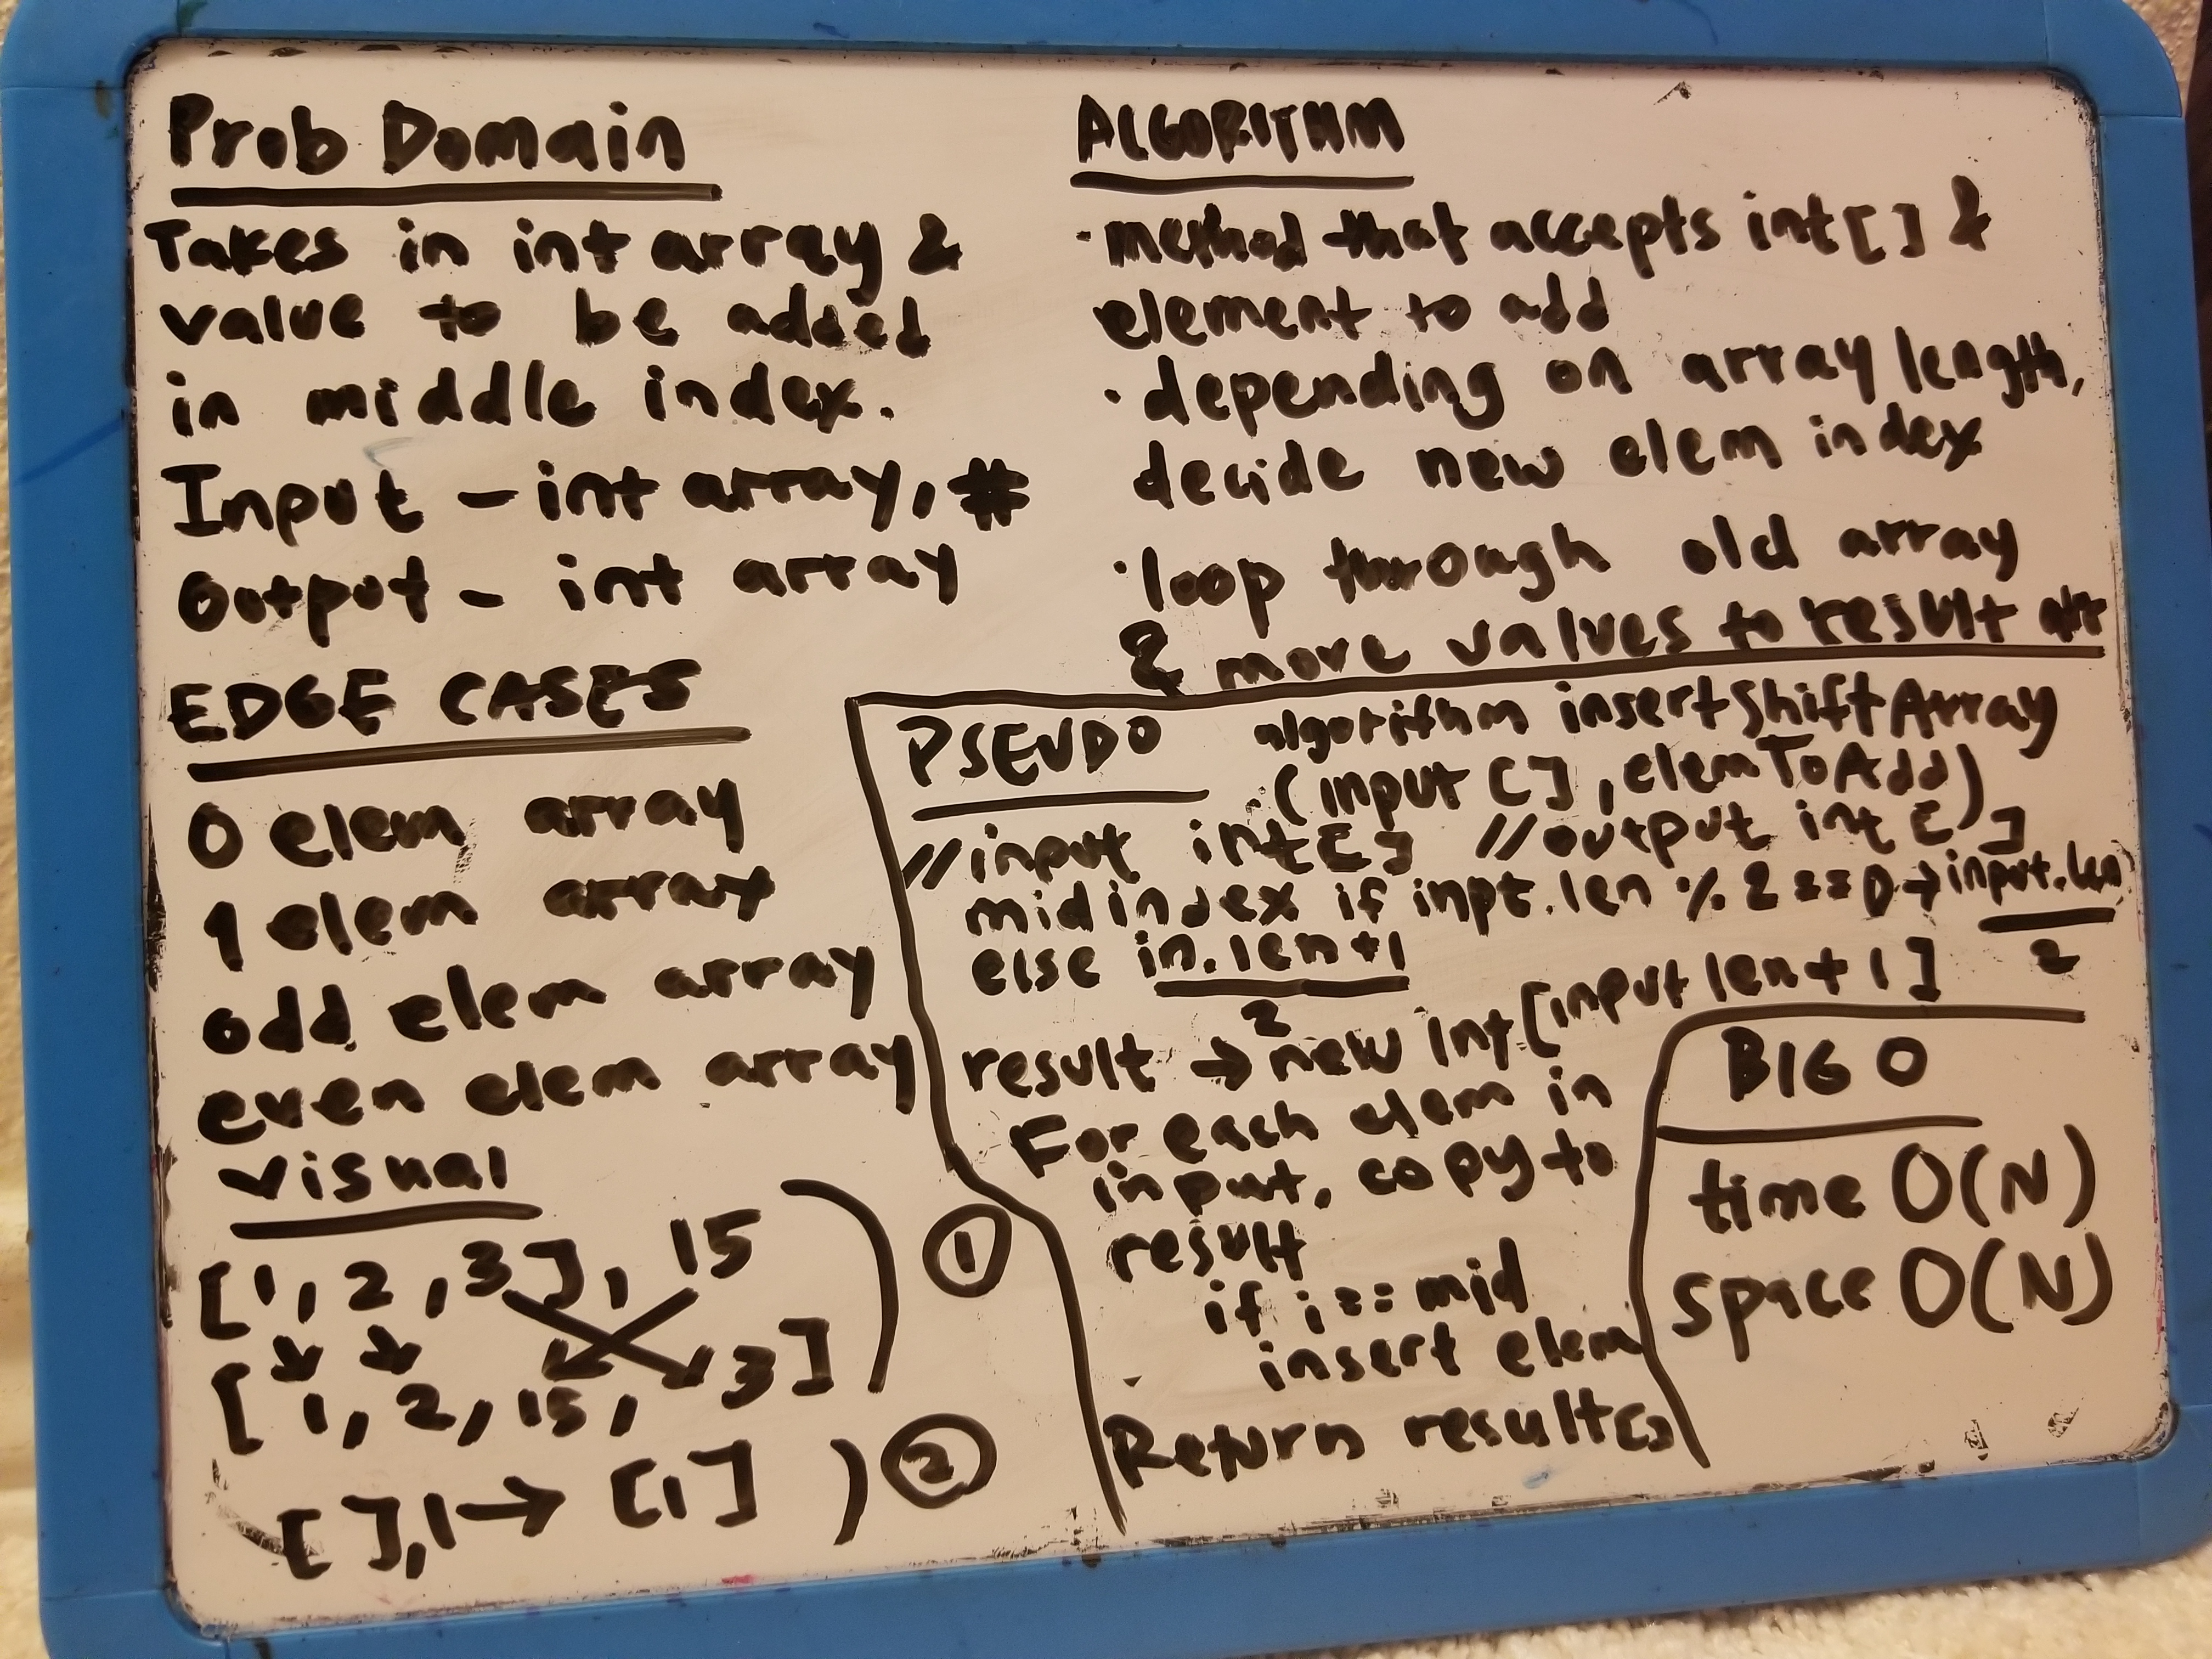 Prob Domain
Takes in int array &
value to be added
in middle index.
Input - int array, #
Output - int array
EDGE CASES
0 elem array
1 elem array
odd elem array
even elem array
Visual
[1, 2, 3], 15
[1, 2, 15, 3]
①
[],1 → [1]
②
ALGORITHM
· method that accepts int[] &
element to add
· depending on array length,
decide new elem index
· loop through old array
& move values to result arr
PSEUDO algorithm insertShiftArray
(input [], elemToAdd)
//input int[] //output int[]
midindex if inpt.len % 2 == 0 → input.len
2
else in.len+1
2
result → new int[input len + 1]
For each elem in
input, copy to
result
if i == mid
insert elem
Return result[]
BIG O
time O(N)
space O(N)